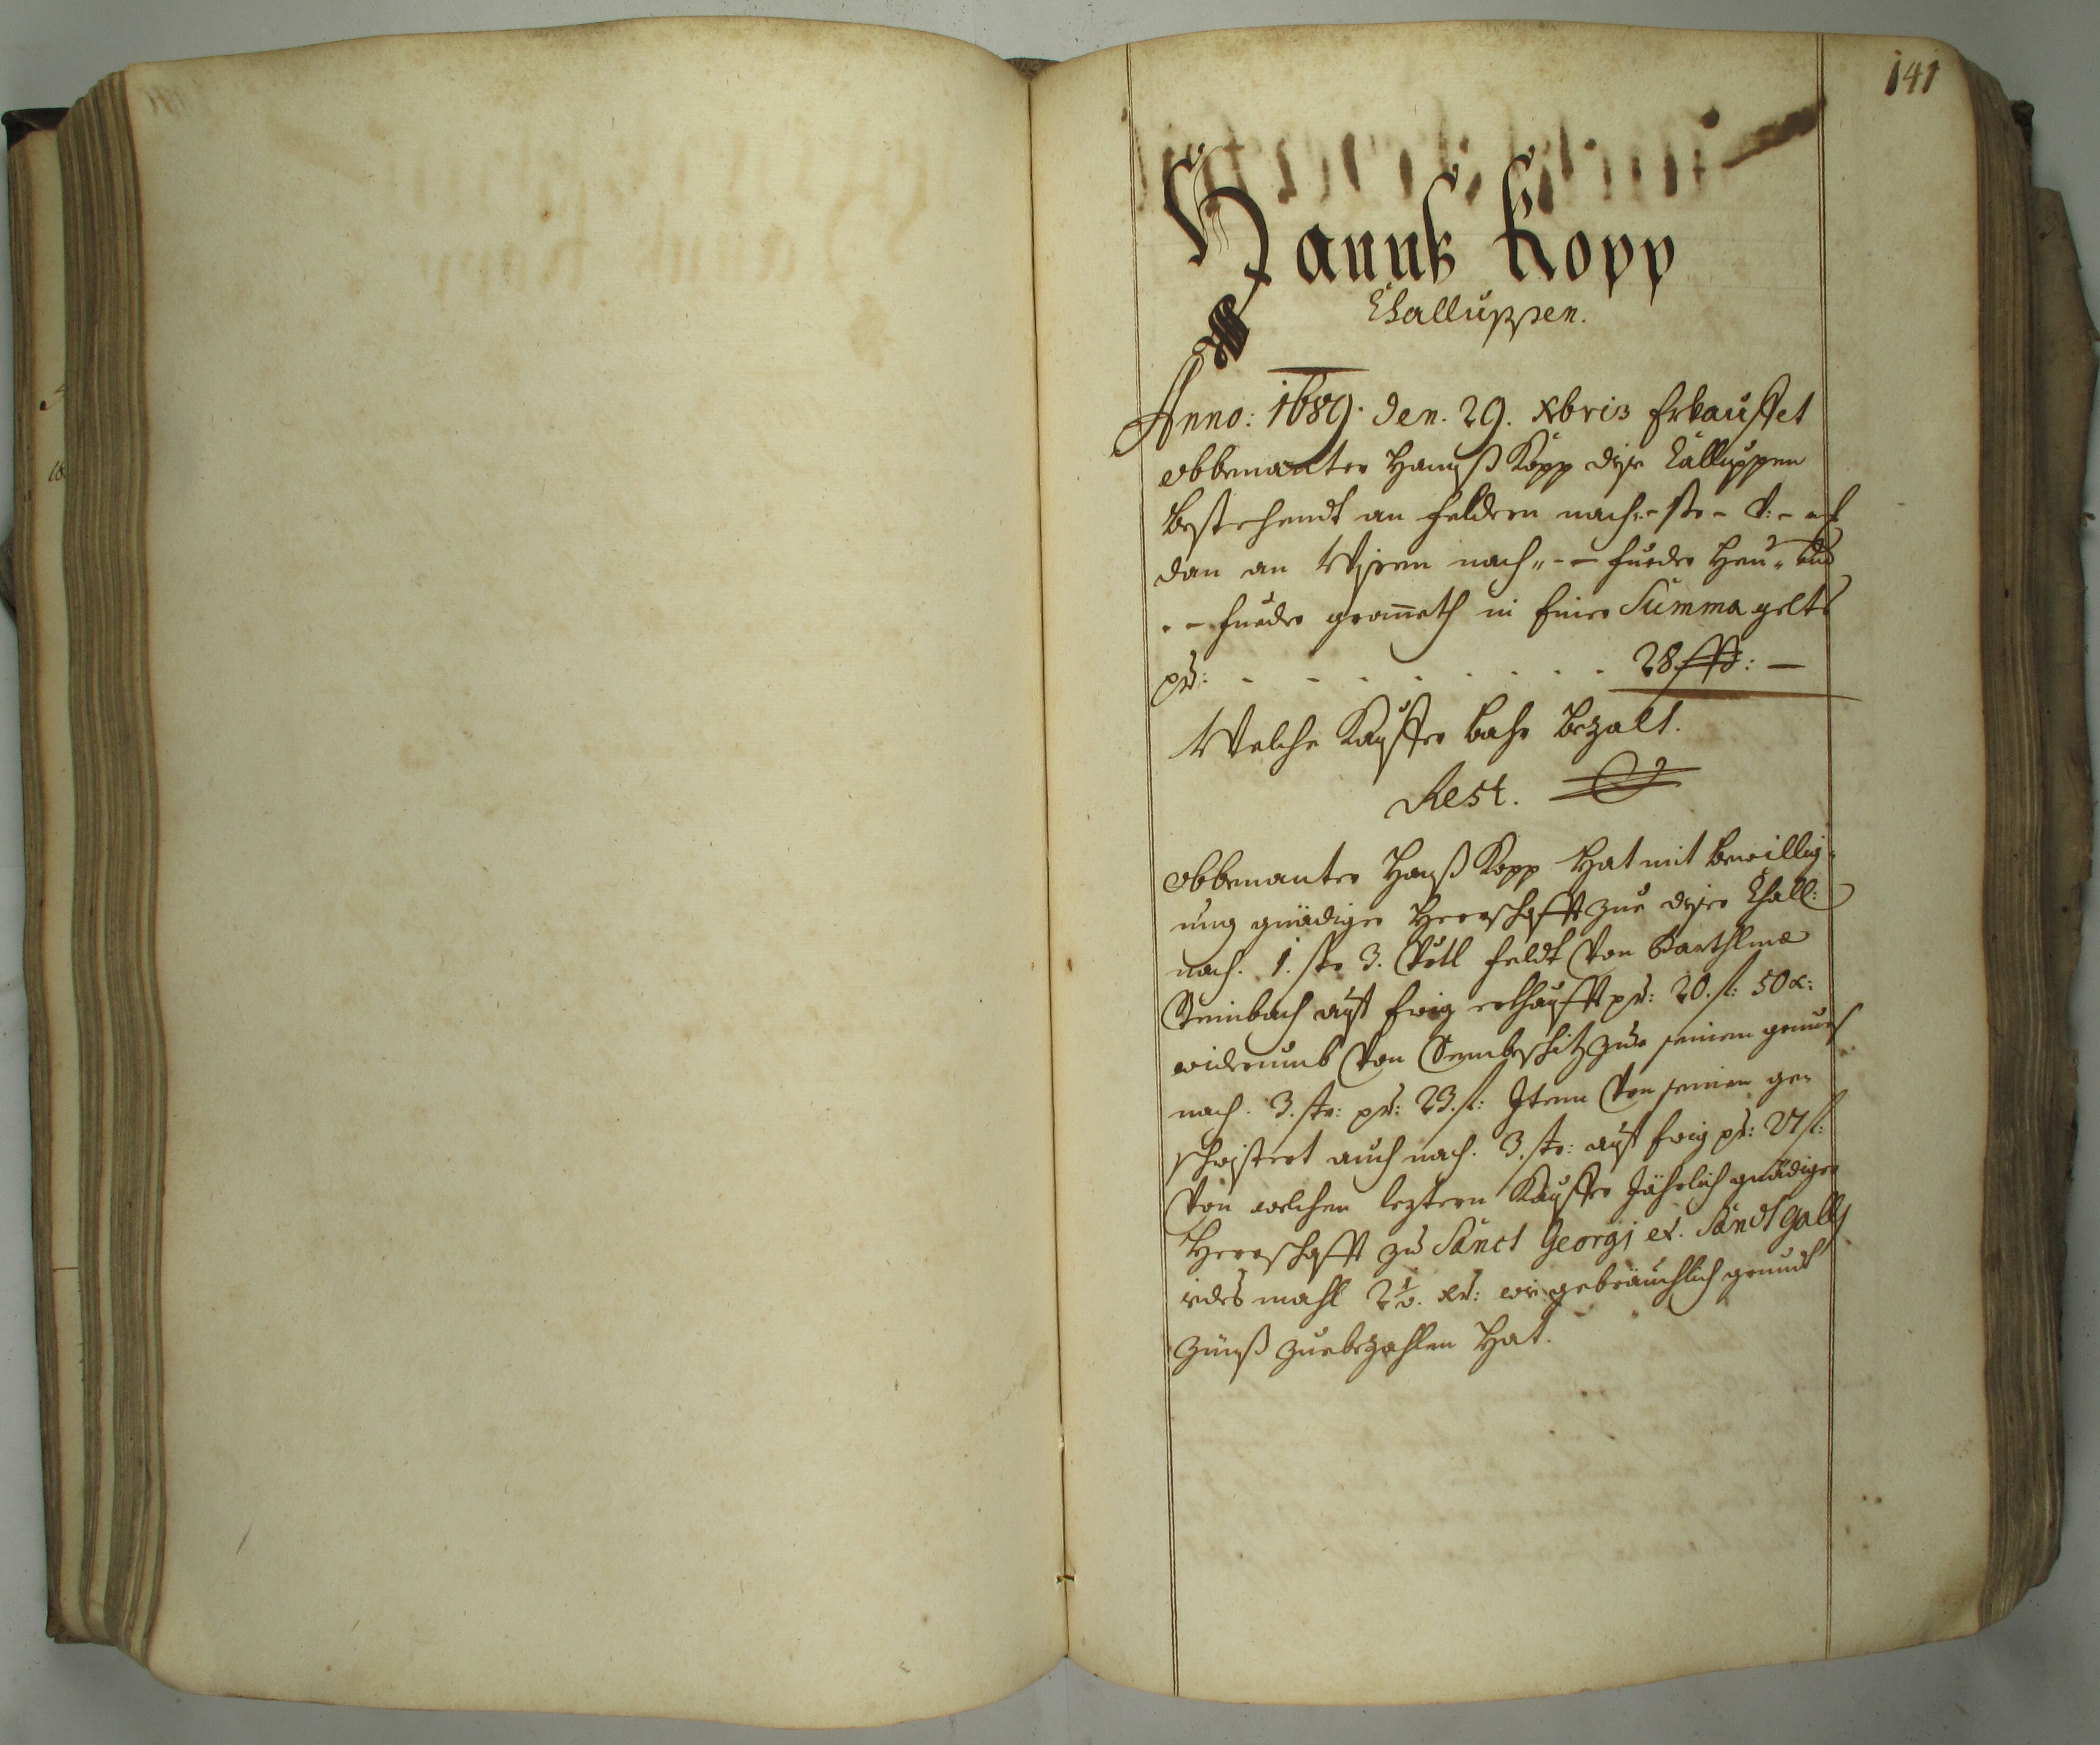 141
Hannß Kopp
Challuppen.
Anno: 1689. den. 29. Xbris Erkauffet
obbenanter Hannß Kopp dise Calluppen
bestehendt an feldern nach - str - v: - ach
dan an Wisen nach - - fueder Heu, und
- - fueder grometh in Einer Summa gelts
pr: - - - - - - - - 28 ſſß: —
Welche Kauffer bahr bezalt.
Rest.
obbenanter Hanß Kopp Hat mit bewillig-
ung gnädiger Herrschafft zue diser Chall:
nach. 1. str 3. Virtl feldt von Barthlme
Steinbach auff Ewig erkhaufft pr: 20. fl: 50 x:
widerumb von zur seinem
nach. 3. str: pr: 23. fl: Item von seinen ge-
schwistert auch nach. 3. str: auff Ewig pr: 27 fl:
von welchen leztern Kauffer Jährlich gnädiger
Herrschafft zu Sanct Georgi et. Sanct Galli
iedes mahl 2½. xr: wie gebräuchlich grundt
Zünß zuebezahlen Hat.